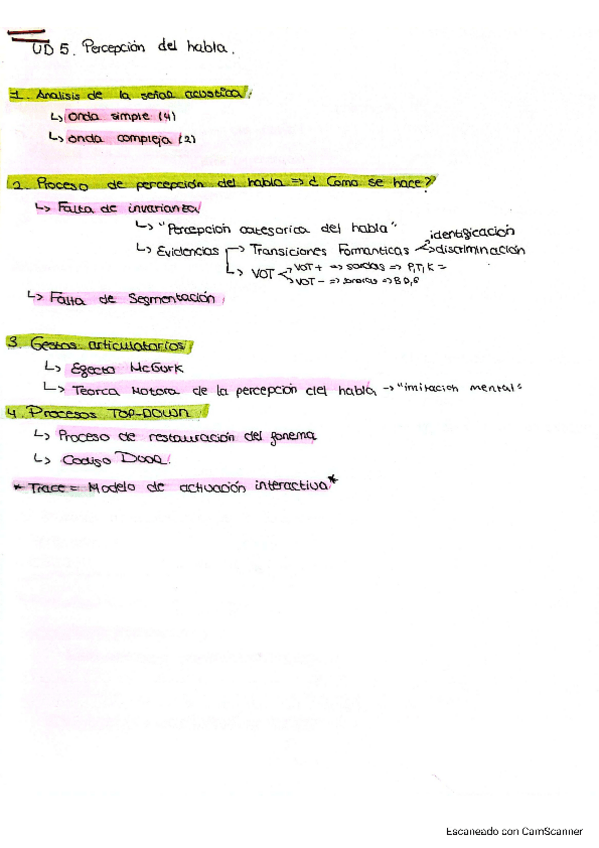 UD 5. Percepción del habla.
1. Analisis de la señal acustica.
↳ onda simple (4)
↳ onda compleja (2)
2. Proceso de percepción del habla => ¿ Como se hace?
↳ Falta de invarianza
↳ "Percepción categorica del habla"
↳ Evidencias → Transiciones Formanticas → identificación
→ discriminación
↳ VOT → VOT + => sordas => P, T, K =
→ VOT - => => B D, G
↳ Falta de Segmentación
3. Gestos articulatorios
↳ Efecto McGurk
↳ Teoría Motora de la percepción del habla → "imitación mental"
4. Procesos TOP-DOWN
↳ Proceso de restauración del fonema
↳ Codigo Dual.
* Trace = Modelo de activación interactiva *
Escaneado con CamScanner